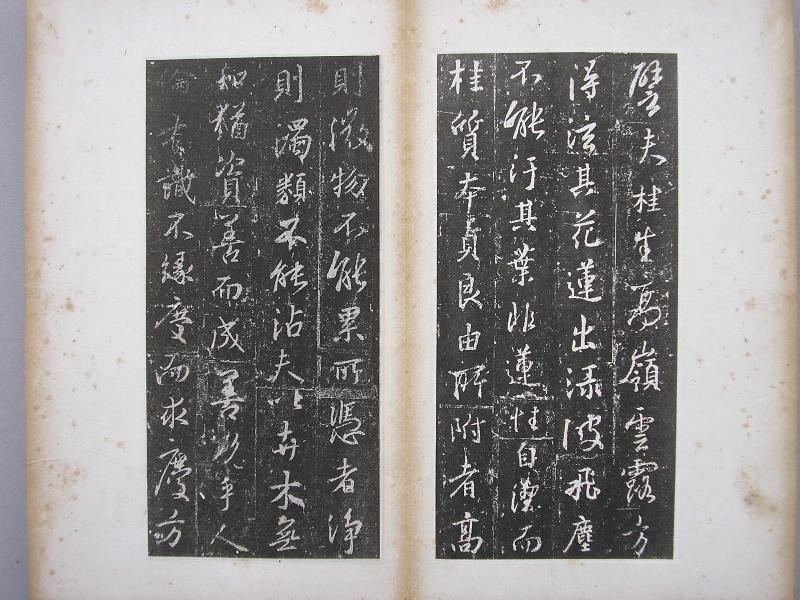 譬夫桂生高嶺雲露方
得泫其花蓮出淥波飛塵
不能汙其葉非蓮性自潔而
桂質本貞良由所附者高
則微物不能累所憑者淨
則濁類不能沾夫以卉木無
知猶資善而成善況乎人
倫有識不緣慶而求慶方